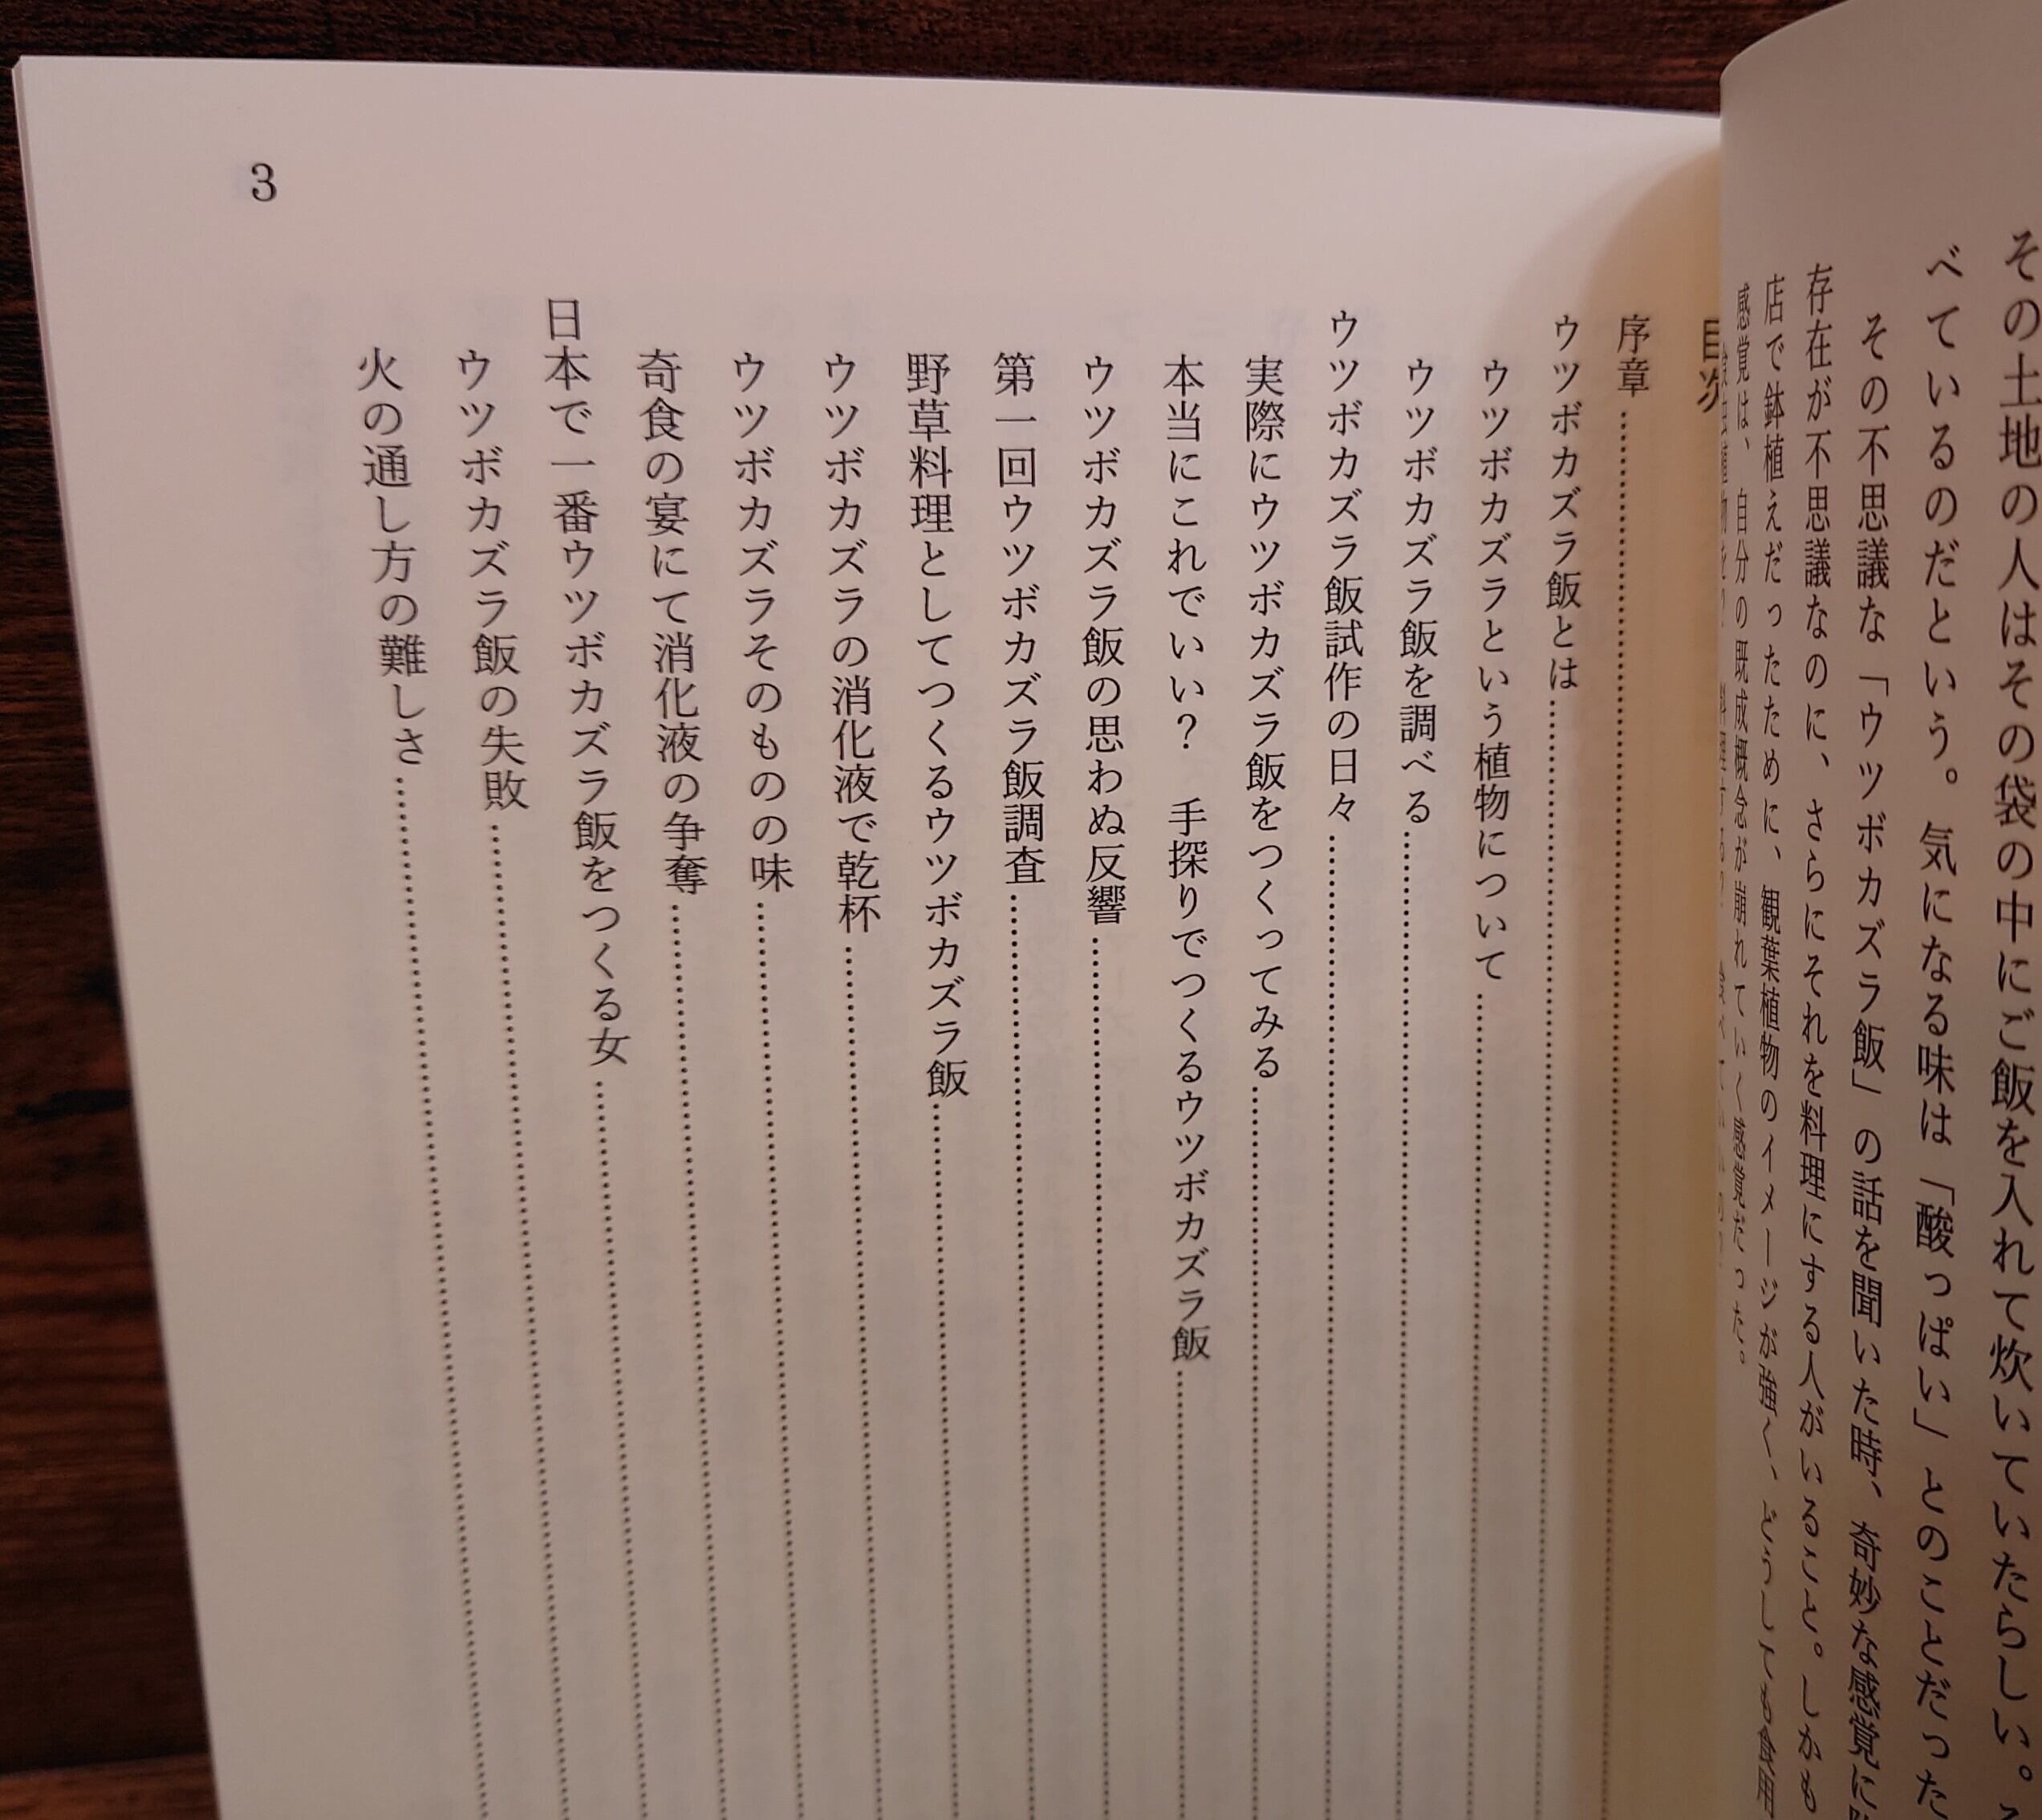 その土地の人はその袋の中にご飯を入れて炊いていたらしい。
べているのだという。気になる味は「酸っぱい」とのことだった
その不思議な「ウツボカズラ飯」の話を聞いた時、奇妙な感覚に
存在が不思議なのに、さらにそれを料理にする人がいること。しかも
店で鉢植えだったために、観葉植物のイメージが強く、どうしても食用
感覚は、自分の既成概念が崩れていく感覚だった。
目次
序章
ウツボカズラ飯とは
ウツボカズラという植物について
ウツボカズラ飯を調べる
ウツボカズラ飯試作の日々
実際にウツボカズラ飯をつくってみる
本当にこれでいい？　手探りでつくるウツボカズラ飯
ウツボカズラ飯の思わぬ反響
第一回ウツボカズラ飯調査
野草料理としてつくるウツボカズラ飯
ウツボカズラの消化液で乾杯
ウツボカズラそのものの味
奇食の宴にて消化液の争奪
日本で一番ウツボカズラ飯をつくる女
ウツボカズラ飯の失敗
火の通し方の難しさ
3